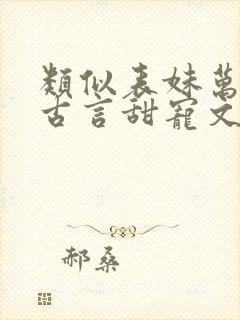 類似表妹萬
古言甜寵文
郝桑